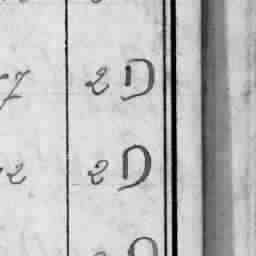 7 2 D
2 2 D